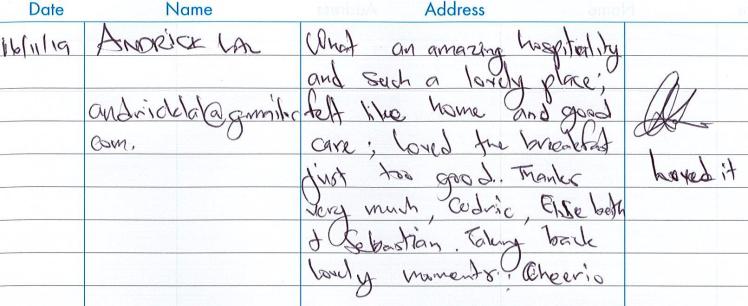 Date Name Address
16/11/19 ANDRICK LAL What an amazing hospitality
and such a lovely place;
andricklal@gmail.c felt like home and good
com. care; loved the breakfast
just too good.. Thanks loved it
very much, Cedric, Elsebeth
& Sebastian. Taking back
lovely moments! Cheerio